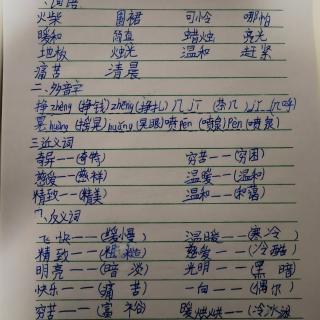 一、词语
火柴 围裙 可怜 哪怕
暖和 简直 蜡烛 亮光
地板 烛光 温和 赶紧
痛苦 清晨
二、多音字
挣zhèng(挣钱)zhēng(挣扎)几jī(茶几)jǐ(几时)
晃huàng(摇晃)huǎng(晃眼)喷pēn(喷泉)
三近义词
奇异——(奇特) 穷苦——(穷困)
慈爱——(慈祥) 温暖——(温和)
精致——(精美) 温和——(和蔼)
反义词
飞快——(缓慢) 温暖——(寒冷)
精致——(粗糙) 慈爱——(冷酷)
明亮——(暗淡) 光明——(黑暗)
快乐——(痛苦) 一向——(偶尔)
穷苦——(富裕) 暖烘烘——(冷冰冰